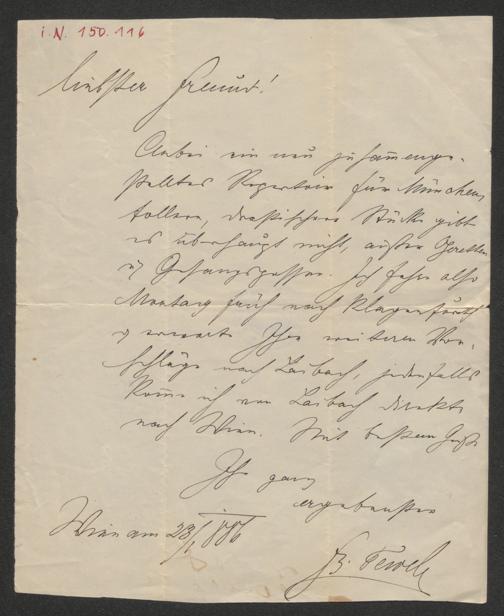 I. N. 150.116
liebster Freund!
Anbei ein neu zusam̅enge-
stelltes Repertoir für München,
tollere, drastischere Stücke gibt
es überhaupt nicht, außer
u Gesangspossen. Ich fahre also
Montag früh nach Klagenfurth
u erwarte Ihre weiteren Vor-
schläge nach Laibach, jedenfalls
kom̅e ich von Laibach direkte
nach Wien. Mit bestem Gruß
Ihr ganz
ergebenster
Wien am 23/I 886
F. Tewele